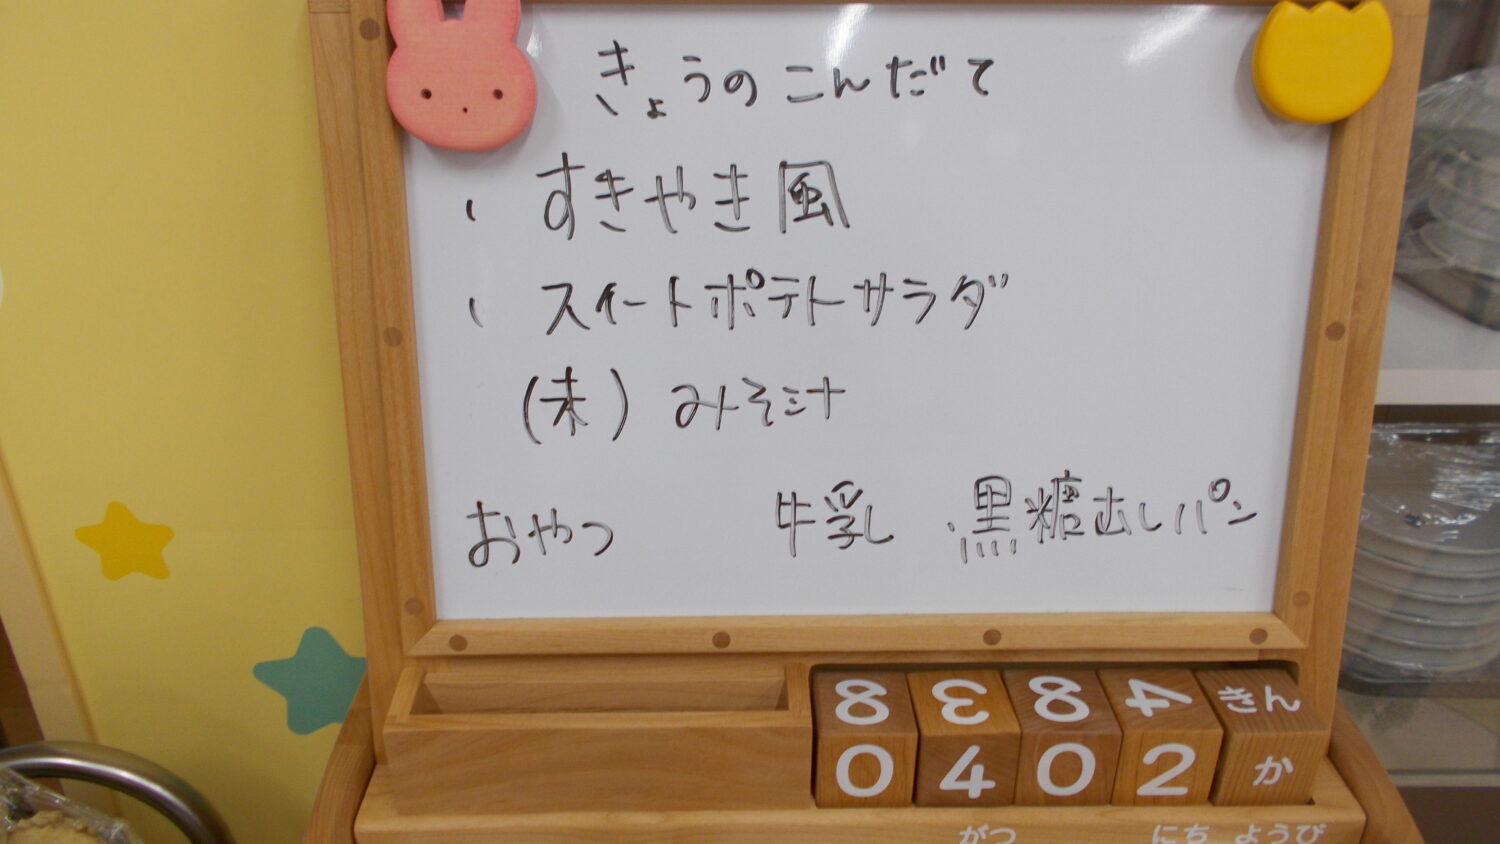 きょうの こんだて
・ すきやき風
・ スイートポテトサラダ
(未) みそ汁
おやつ 牛乳 黒糖出しパン
8 3 8 4 きん
0 4 0 2 か
がつ にち ようび